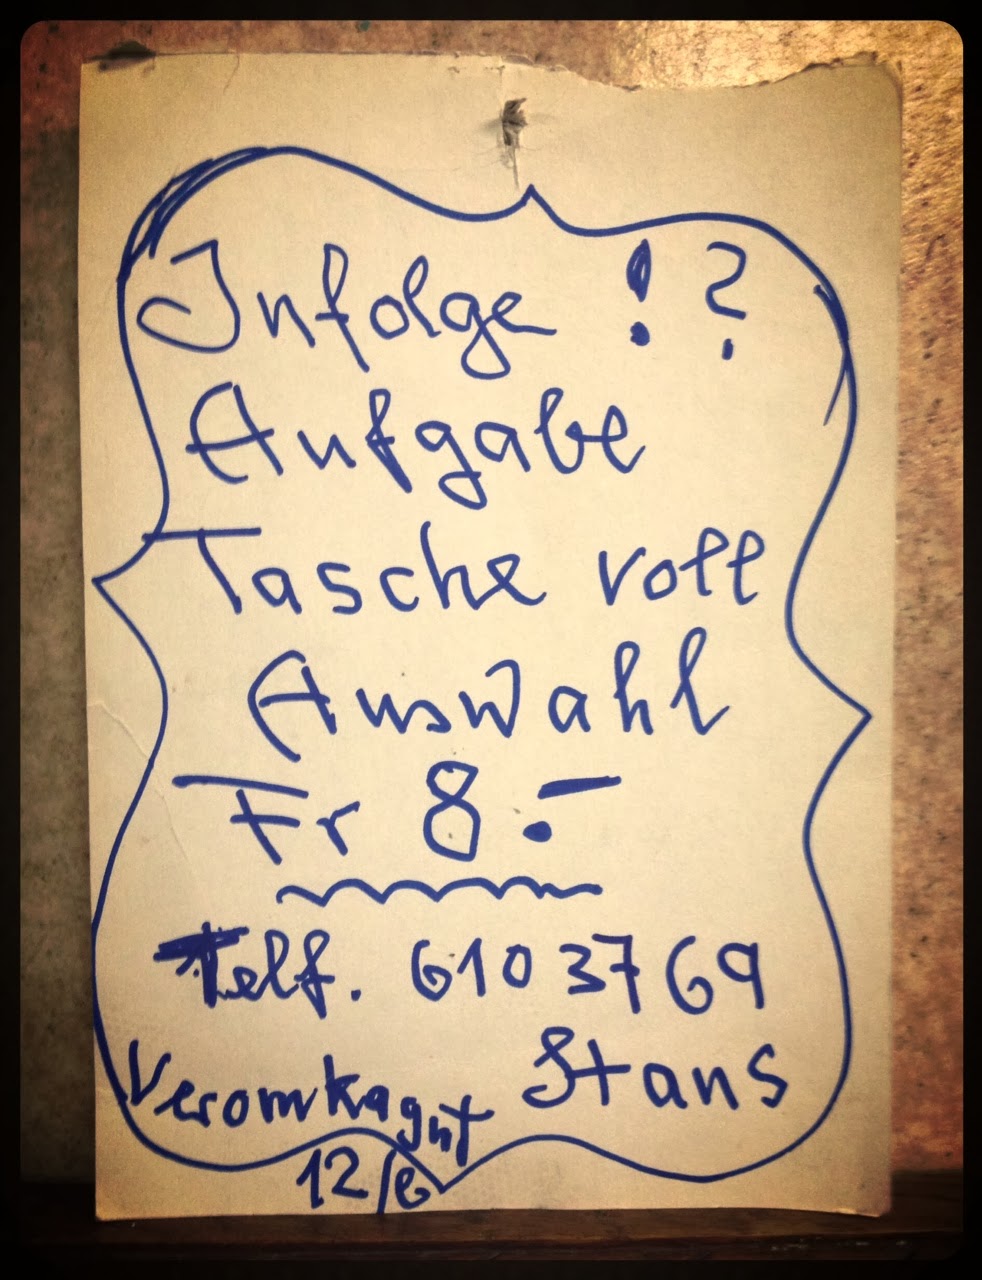 Infolge !?
Aufgabe
Tasche voll
Auswahl
Fr 8.-
Telf. 610 37 69
Stans
12/e